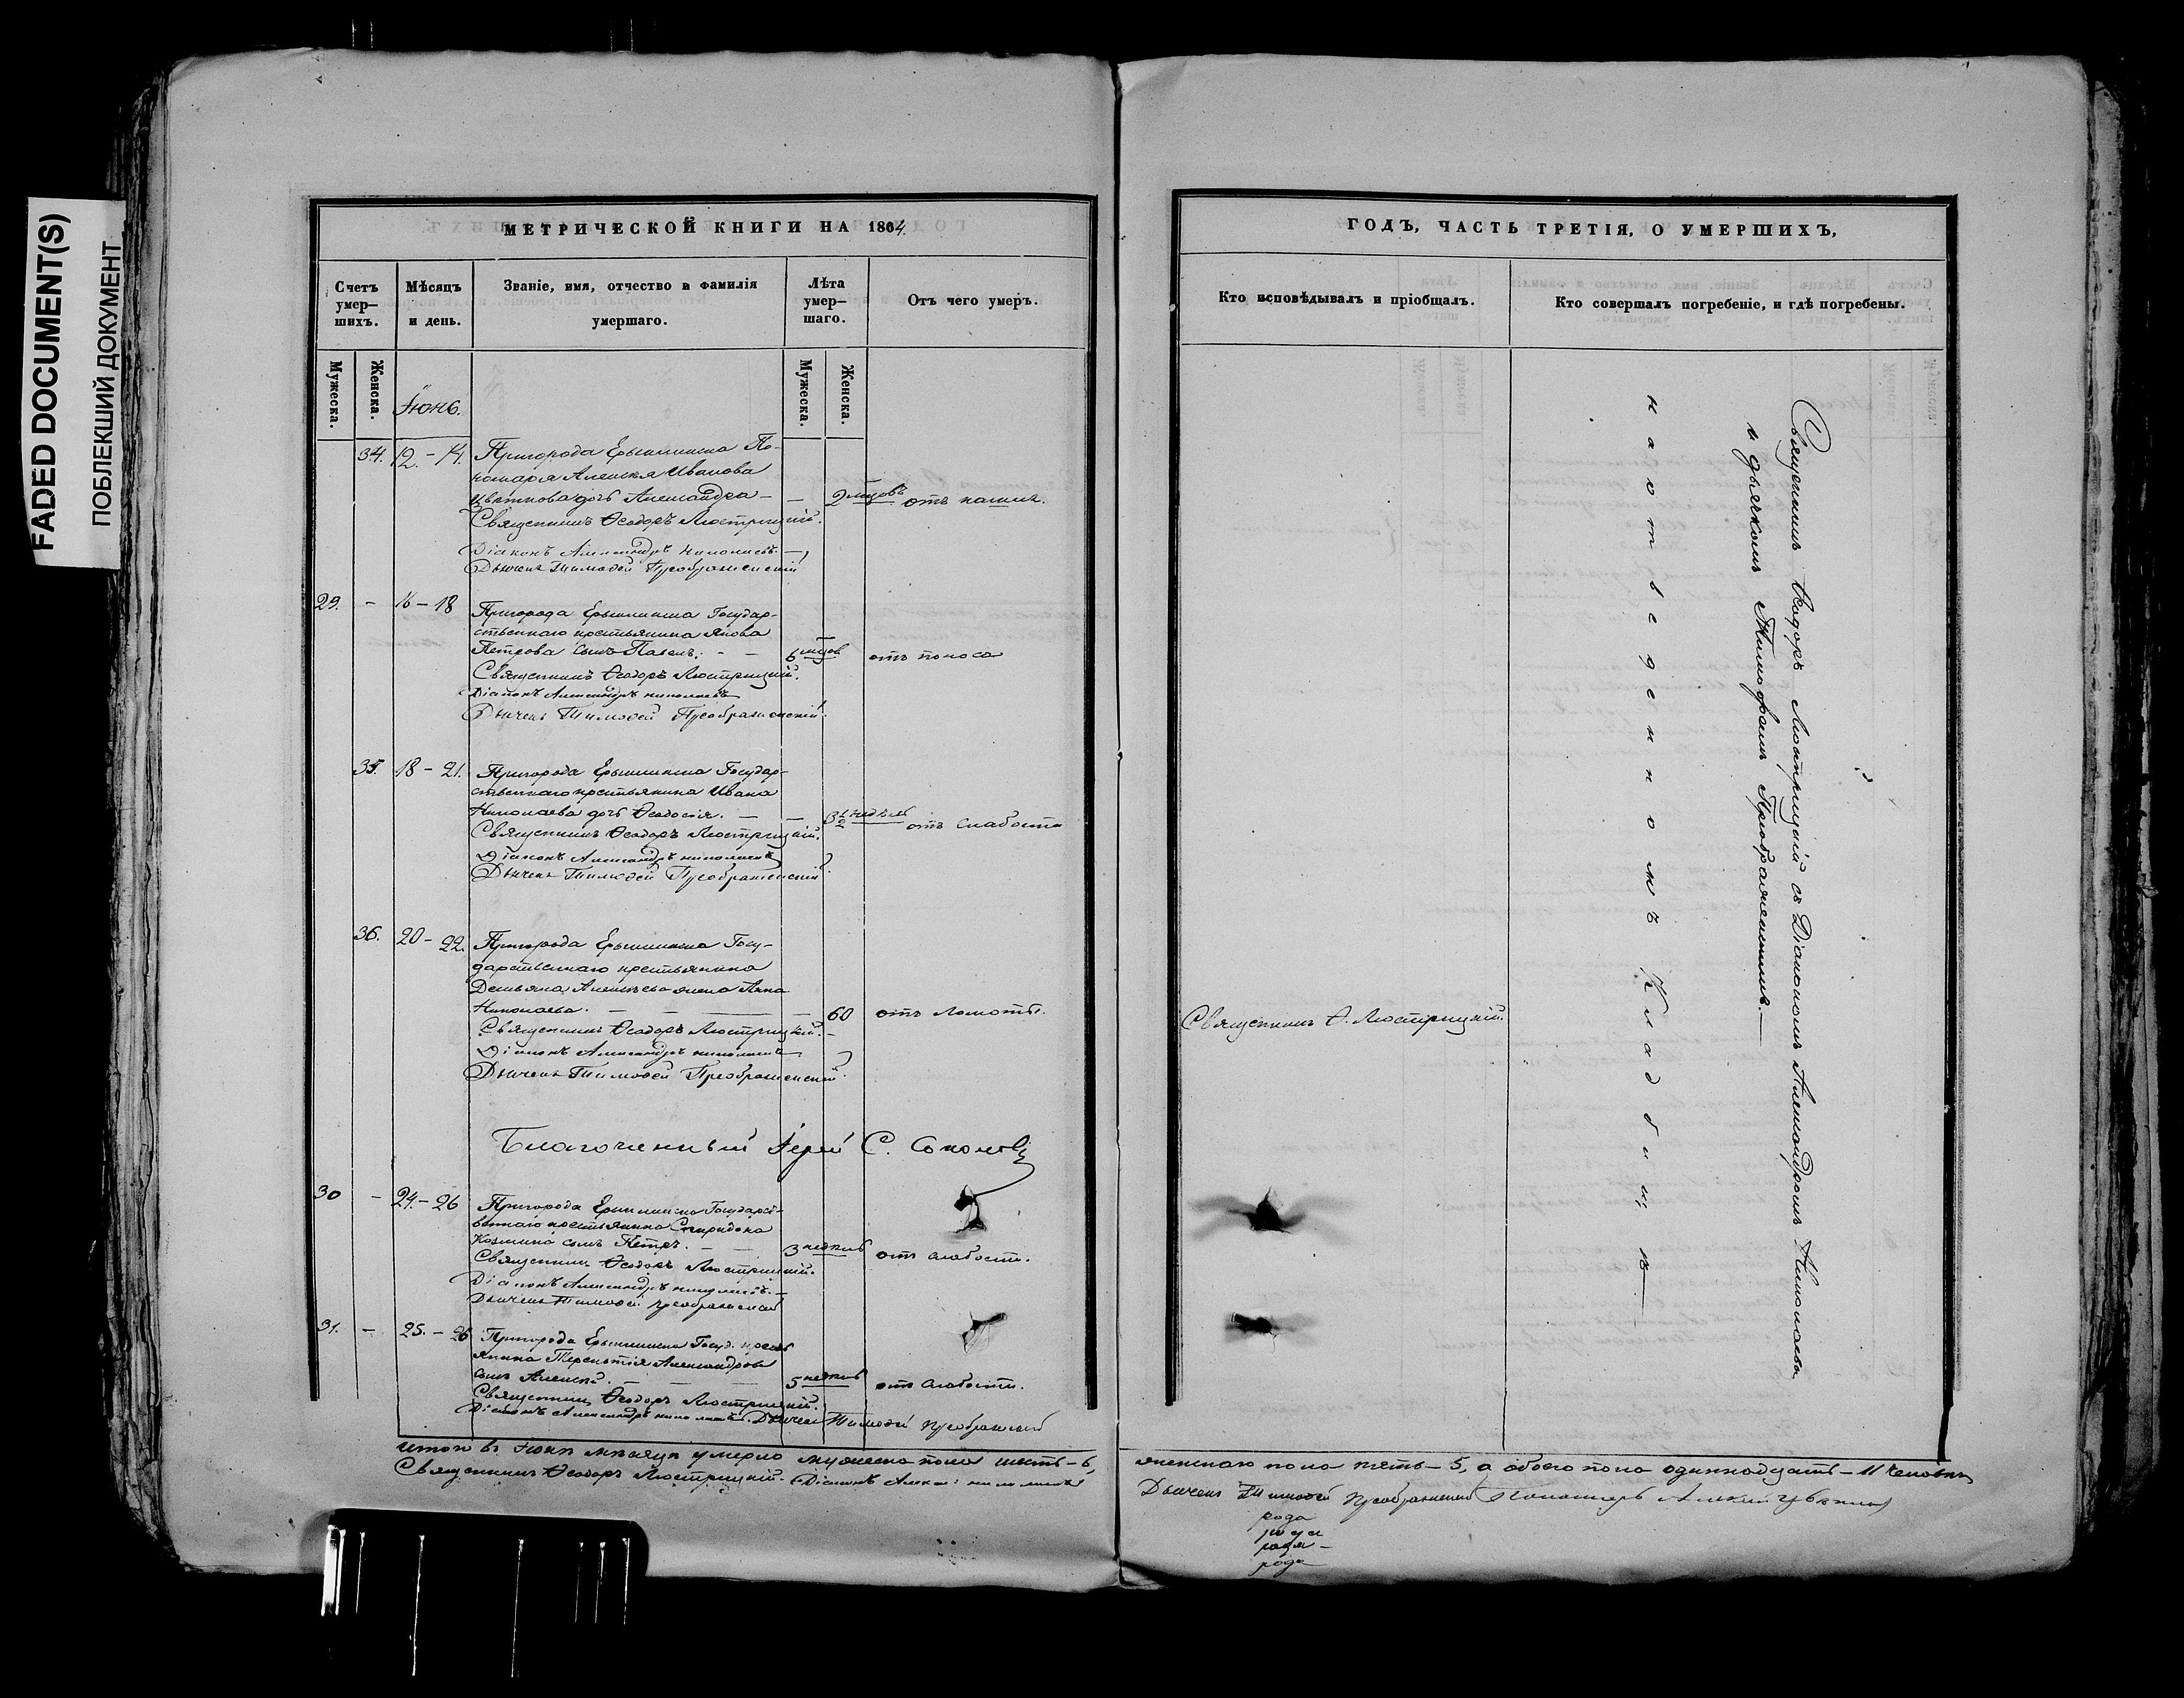 FADED DOCUMENT(S)
ПОБЛЕКШИЙ ДОКУМЕНТ
МЕТРИЧЕСКОЙ КНИГИ НА 1864
Счетъ умер—шихъ.
Мѣсяцъ и день.
Званіе, имя, отчество и фамилія умершаго.
Лѣта умер—шаго.
Отъ чего умеръ.
Мужеска.
Женска.
Мужеска.
Женска.
Іюнь.
34. 12. – 14. Пригорода Ерыклинска По-
номаря Алексѣя Иванова
Цвѣткова дочь Александра – – 2 мцовъ отъ кашля.
Священникъ Ѳеодоръ Люстрицкій.
Діаконъ Александръ Николаевъ.
Дьячекъ Тимоѳей Преображенскій
29. – 16 – 18 Пригорода Ерыклинска Государ-
ственнаго крестьянина Якова
Петрова сынъ Павелъ. – – 6 мцов отъ поноса
Священникъ Ѳеодоръ Люстрицкій.
Діаконъ Александръ Николаевъ
Дьячекъ Тимоѳей Преображенскій.
35. 18 – 21. Пригорода Ерыклинска Государ-
ственнаго крестьянина Ивана
Николаева дочь Ѳеодосія. – – 3½ недѣль отъ слабости
Священникъ Ѳеодоръ Люстрицкій.
Діаконъ Александръ Николаевъ
Дьячекъ Тимоѳей Преображенскій.
36. 20 – 22. Пригорода Ерыклинска Госу-
дарственнаго крестьянина
Демьяна Алексѣева жена Анна
Николаева. – – – 60 отъ ломоты.
Священникъ Ѳеодоръ Люстрицкій.
Діаконъ Александръ Николаевъ
Дьячекъ Тимоѳей Преображенскій.
Благочинный Іерей С. Соколовъ
30 – 24. – 26 Пригорода Ерыклинска Государст-
веннаго крестьянина Спиридона
Козмина сынъ Петръ. – – 3 недѣль отъ слабости.
Священникъ Ѳеодоръ Люстрицкій.
Діаконъ Александръ Николаевъ.
Дьячекъ Тимоѳей Преображенскій
31. – 25. – 26 Пригорода Ерыклинска Госуд. кресть
янина Терентія Александрова
сынъ Алексѣй. – – – 5 недѣль отъ слабости.
Священникъ Ѳеодоръ Люстрицкій.
Діаконъ Александръ Николаевъ. Дьячекъ Тимоѳей Преображенскій
Итого въ Іюнѣ мѣсяцѣ умерло мужеска пола шесть – 6,
Священникъ Ѳеодоръ Люстрицкій. Діаконъ Алекса: Николаевъ
ГОДЪ, ЧАСТЬ ТРЕТІЯ, О УМЕРШИХЪ,
Кто исповѣдывалъ и пріобщалъ.
Кто совершалъ погребеніе, и гдѣ погребены.
Священникъ Ѳеодоръ Люстрицкій съ Діакономъ Александромъ Николаевымъ
и дьячкомъ Тимофеемъ Преображенскимъ.
на отведенномъ Кладбищѣ
Священникъ Ѳ. Люстрицкій.
женскаго пола пять – 5, а обоего пола одиннадцать – 11 человѣкъ
Дьячекъ Тимоѳей Преображенскій Пономарь Алексѣй Цвѣтковъ
рода
рода